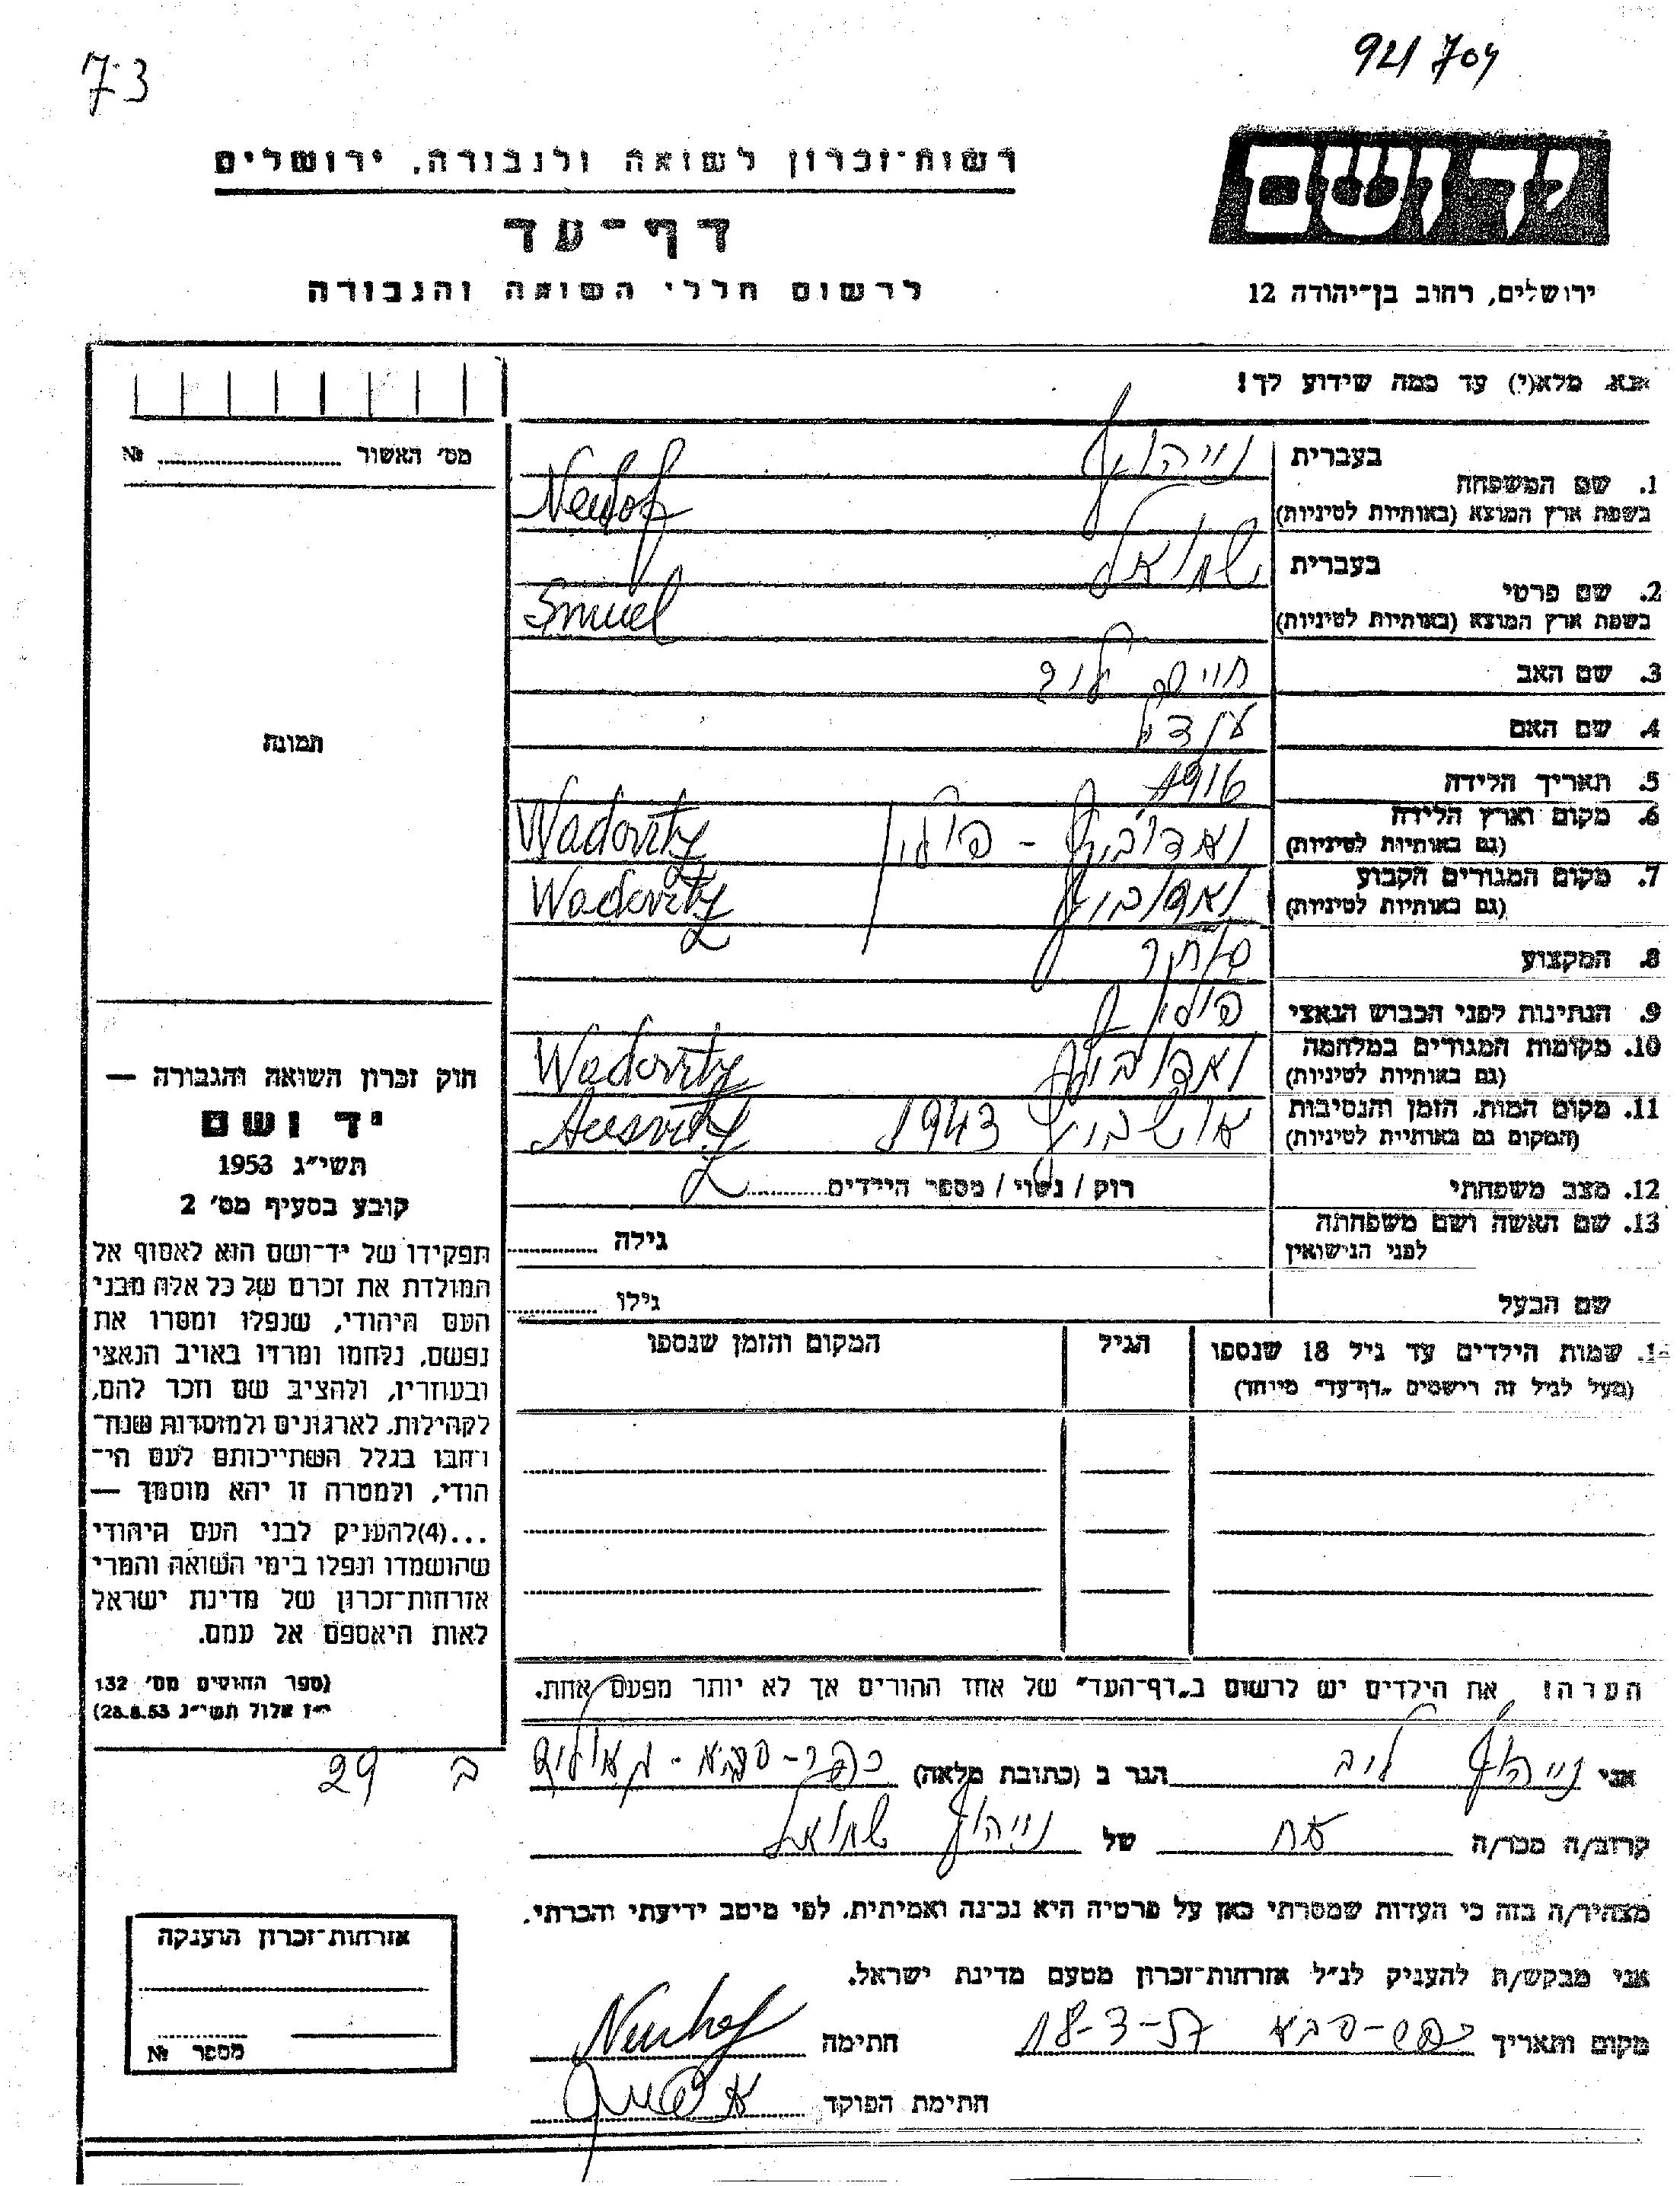 73
921 704
רשות־זכרון לשואה ולגבורה, ירושלים
יד ושם
דף־עד
לרשום חללי השואה והגבורה
ירושלים, רחוב בן־יהודה 12
אנא, מלא(י) עד כמה שידוע לך!
מס' האשור № ..........
1. שם המשפחה
בעברית נייהוף
בשפת ארץ המוצא (באותיות לטיניות) Neuhof
2. שם פרטי
בעברית שמואל
בשפת ארץ המוצא (באותיות לטיניות) Smuel
3. שם האב חיים ליב
4. שם האם
5. תאריך הלידה 1916
6. מקום וארץ הלידה ואדוביץ - פולין Wadovitz
(גם באותיות לטיניות)
7. מקום המגורים הקבוע ואדוביץ Wadovitz
(גם באותיות לטיניות)
8. המקצוע סוחר
9. הנתינות לפני הכבוש הנאצי
10. מקומות המגורים במלחמה ואדוביץ Wadovitz
(גם באותיות לטיניות)
11. מקום המות, הזמן והנסיבות אושביץ 1943 Ausvitz
(המקום גם באותיות לטיניות)
12. מצב משפחתי רווק / נשוי / מספר הילדים ..........
13. שם האשה ושם משפחתה
לפני הנישואין
גילה ..........
שם הבעל
גילו ..........
14. שמות הילדים עד גיל 18 שנספו
(מעל לגיל זה רישמים „דף־עד" מיוחד)
הגיל
המקום והזמן שנספו
תמונה
חוק זכרון השואה והגבורה —
יד ושם
תשי"ג 1953
קובע בסעיף מס' 2
תפקידו של יד־ושם הוא לאסוף אל
המולדת את זכרם של כל אלה מבני
העם היהודי, שנפלו ומסרו את
נפשם, נלחמו ומרדו באויב הנאצי
ובעוזריו, ולהציב שם וזכר להם,
לקהילות, לארגונים ולמוסדות שנח־
רחבו בגלל השתייכותם לעם הי־
הודי, ולמטרה זו יהא מוסמך —
...(4)להעניק לבני העם היהודי
שהושמדו ונפלו בימי השואה והמרי
אזרחות־זכרון של מדינת ישראל
לאות היאספם אל עמם.
(ספר החוקים מס' 132
י"ז אלול תשי"ג 28.8.53)
הערה! את הילדים יש לרשום ב„דף־העד" של אחד ההורים אך לא יותר מפעם אחת.
אני נייהוף ליב הגר ב (כתובת מלאה) כפר-סבא - ב 29
קרוב/ה מכר/ה אח של נייהוף שמואל
מצהיר/ה בזה כי העדות שמסרתי כאן על פרטיה היא נכונה ואמיתית, לפי מיטב ידיעתי והכרתי.
אני מבקש/ת להעניק לנ"ל אזרחות־זכרון מטעם מדינת ישראל.
מקום ותאריך כפר-סבא 18-3-57 חתימה Neuhof
חתימת הפוקד
אזרחות־זכרון הוענקה
מספר №